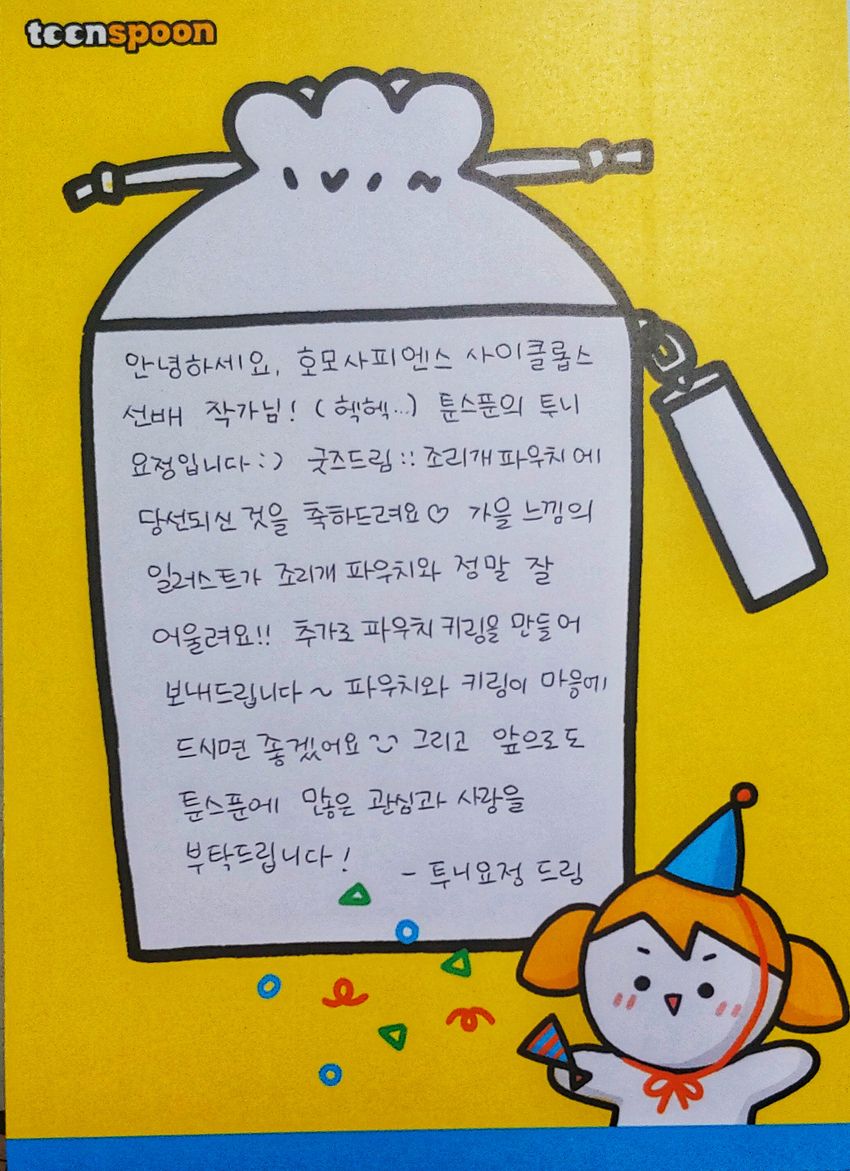 toonspoon
안녕하세요, 호모사피엔스 사이클롭스
선배 작가님! (헥헥...) 툰스푼의 투니
요정입니다:) 굿즈드림:: 조리개파우치에
당선되신 것을 축하드려요♡ 가을 느낌의
일러스트가 조리개 파우치와 정말 잘
어울려요!! 추가로 파우치 키링을 만들어
보내드립니다~ 파우치와 키링이 마음에
드시면 좋겠어요 그리고 앞으로도
툰스푼에 많은 관심과 사랑을
부탁드립니다!
- 투니요정 드림